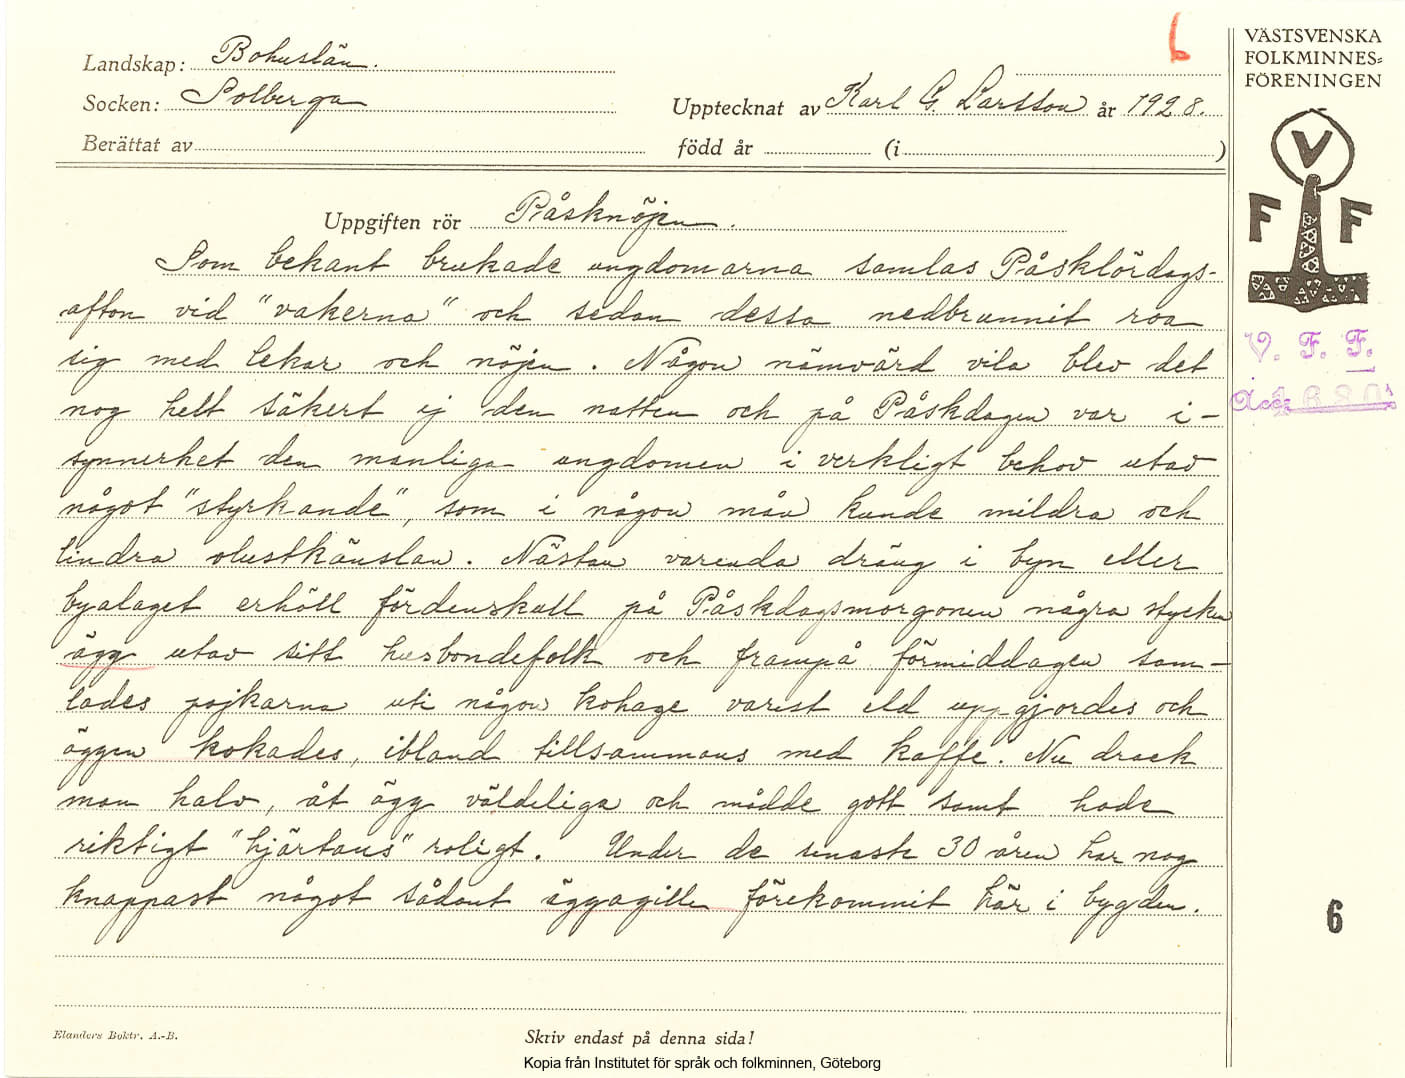 6
VÄSTSVENSKA
FOLKMINNES=
FÖRENINGEN
Landskap: Bohuslän.
Socken: Solberga
Upptecknat av Karl G. Larsson år 1928.
Berättat av
född år (i )
V
F F
V. F. F.
Acc. 1680
Uppgiften rör Påsknöjen.
Som bekant brukade ungdomarna samlas Påsklördags-
afton vid "vakerna" och sedan dessa nedbrunnit roa
sig med lekar och nöjen. Någon nämvärd vila blev det
nog helt säkert ej den natten och på Påskdagen var i-
synnerhet den manliga ungdomen i verkligt behov utav
något "styrkande", som i någon mån kunde mildra och
lindra olustkänslan. Nästan varenda dräng i byn eller
byalaget erhöll fördenskull på Påskdagsmorgonen några stycken
ägg utav sitt husbondefolk och frampå förmiddagen sam-
lades pojkarna uti någon kohage varest eld uppgjordes och
äggen kokades, ibland tillsammans med kaffe. Nu drack
man halv, åt ägg väldeliga och mådde gott samt hade
riktigt "hjärtans" roligt. Under de senaste 30 åren har nog
knappast något sådant äggagille förekommit här i bygden.
6
Elanders Boktr. A.-B.
Skriv endast på denna sida!
Kopia från Institutet för språk och folkminnen, Göteborg